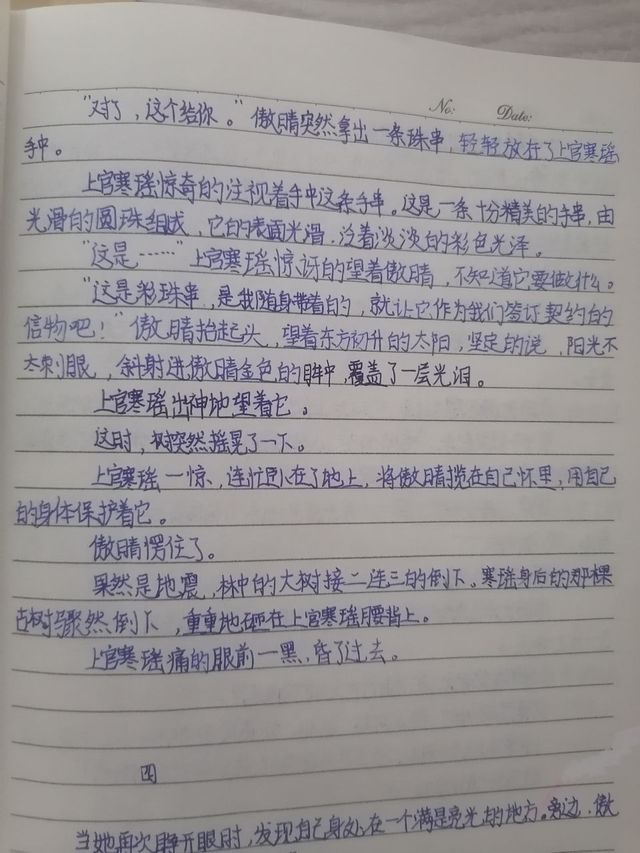 No: Date:
“对了，这个给你。”傲晴突然拿出一条珠串，轻轻放在了上官寒瑶
手中。
上官寒瑶惊奇的注视着手中这条手串。这是一条十分精美的手串，由
光滑的圆珠组成，它的表面光滑，泛着淡淡的彩色光泽。
“这是……”上官寒瑶惊讶的望着傲晴，不知道它要做什么。
“这是彩珠串，是我随身带着的，就让它作为我们签订契约的
信物吧！”傲晴抬起头，望着东方初升的太阳，坚定的说，阳光不
太刺眼，斜射进傲晴金色的眸中，覆盖了一层光泪。
上官寒瑶出神地望着它。
这时，树突然摇晃了一下。
上官寒瑶一惊，连忙卧在了地上，将傲晴揽在自己怀里，用自己
的身体保护着它。
傲晴愣住了。
果然是地震，林中的大树接二连三的倒下。寒瑶身后的那棵
古树骤然倒下，重重地砸在上官寒瑶腰背上。
上官寒瑶痛的眼前一黑，昏了过去。
四
当她再次睁开眼时，发现自己身处在一个满是亮光的地方。旁边，傲